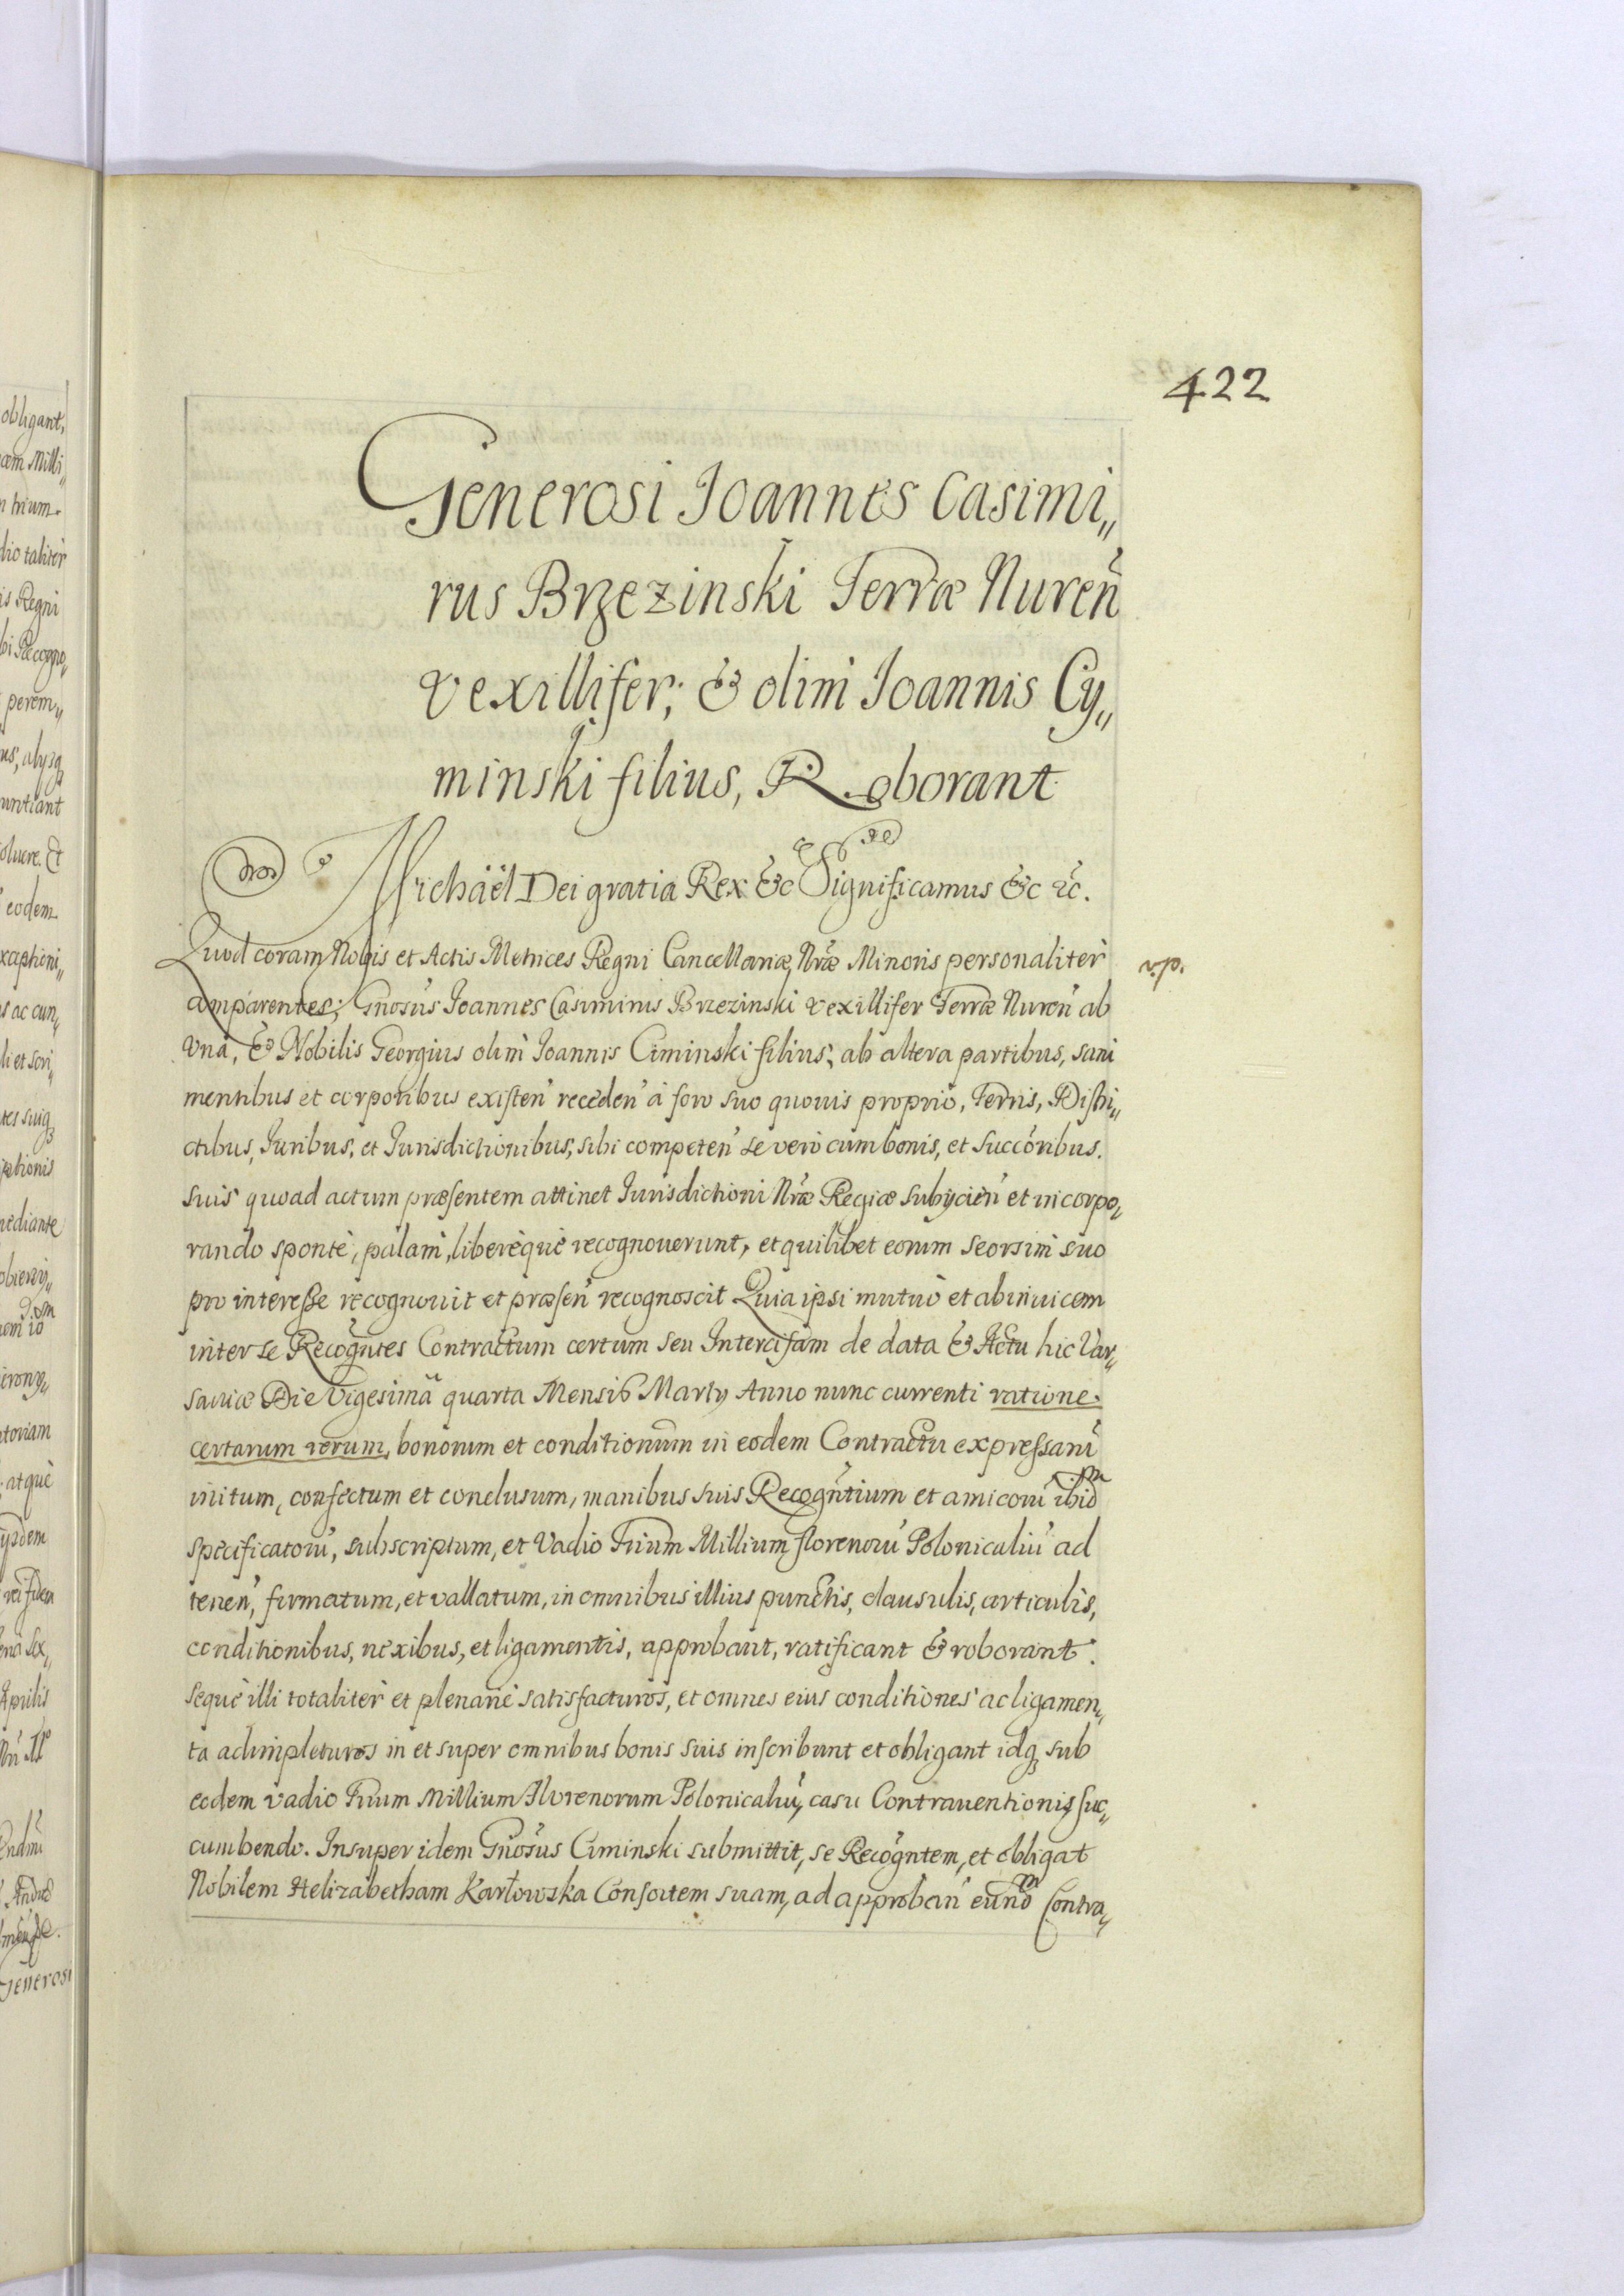 422
Generosi Joannes Casimi„
rus Brzezinski Terræ Nureñ
Vexillifer; & olim Joannis Cy„
minski filius, Roborant
Michaël Dei gratia Rex &c Significamus &c &c.
Quod coram Nobis et Actis Metrices Regni Cancellariæ Nr̃æ Minoris personaliter
comparentes; Gnosus Joannes Casimirus Brzezinski Vexillifer Terræ Nuren̄ ab
Vna, & Nobilis Georgius olim Joannis Ciminski filius, ab altera partibus, sani
mentibus et corporibus existen̄ receden̄ à foro suo quouis proprio, Terris, Distri„
ctibus, Juribus, et Jurisdictionibus, sibi competen̄ se vero cum bonis, et succoribus.
suis quoad actum præsentem attinet Jurisdictioni Nr̃æ Regiæ subijcien̄ et incorpo„
rando sponte, palam, libereque recognouerunt, et quilibet eorum seorsim suo
pro interesse recognouit et præsen̄ recognoscit Quia ipsi mutuo et abinuicem
inter se Recogñtes Contractum certum seu Intercisam de data & Actu hic Var„
sauiæ Die Vigesima quarta Mensis Martij Anno nunc currenti ratione
certarum rerum, bonorum et conditionum in eodem Contractu expressarū
initum, confectum et conclusum, manibus suis Recogñtium et amicorū ibidm
specificatorū, subscriptum, et Vadio Trium Millium florenorū Polonicaliū ad
tenen̄, firmatum, et vallatum, in omnibus illius punctis, clausulis, articulis,
conditionibus, nexibus, et ligamentis, approbant, ratificant & roborant.
seque illi totaliter et plenarie satisfacturos, et omnes eius conditiones ac ligamen„
ta adimpleturos in et super omnibus bonis suis inscribunt et obligant idq₃ sub
eodem vadio Trium Millium Florenorum Polonicaliū, casu Contrauentionis suc„
cumbendo. Insuper idem Gnosus Ciminski submittit, se Recogñtem, et obligat
Nobilem Helizabetham Karłowska Consortem suam, ad approban̄ eundm Contra„
v.p.